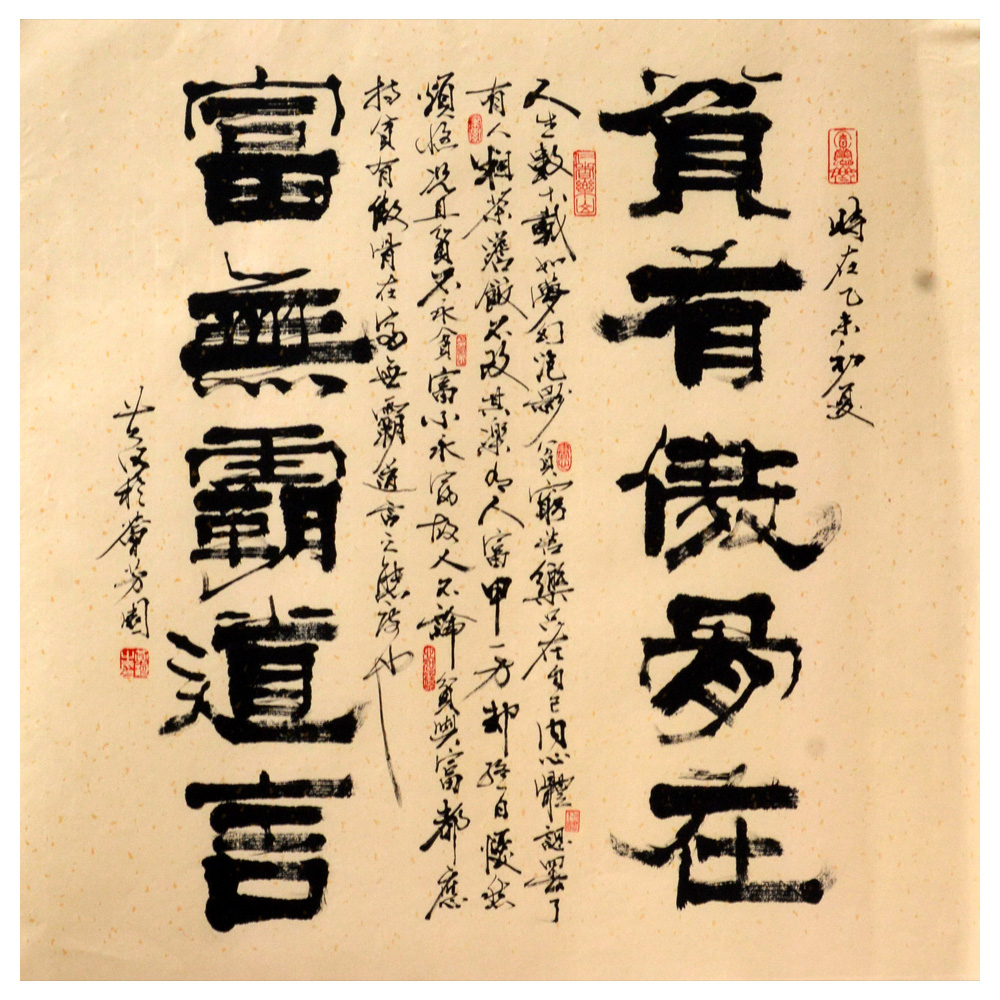 時在乙未初夏
貧有傲骨在
人生數十載如夢幻泡影貧窮苦樂只在自己內心體認罷了
有人粗茶舊飯不改其樂有人富甲一方却終日憂愁
煩惱況且貧不永貧富不永富故人不論貧與富都應
持貧有傲骨在富無霸道言之態度也
富無霸道言
於 芳園